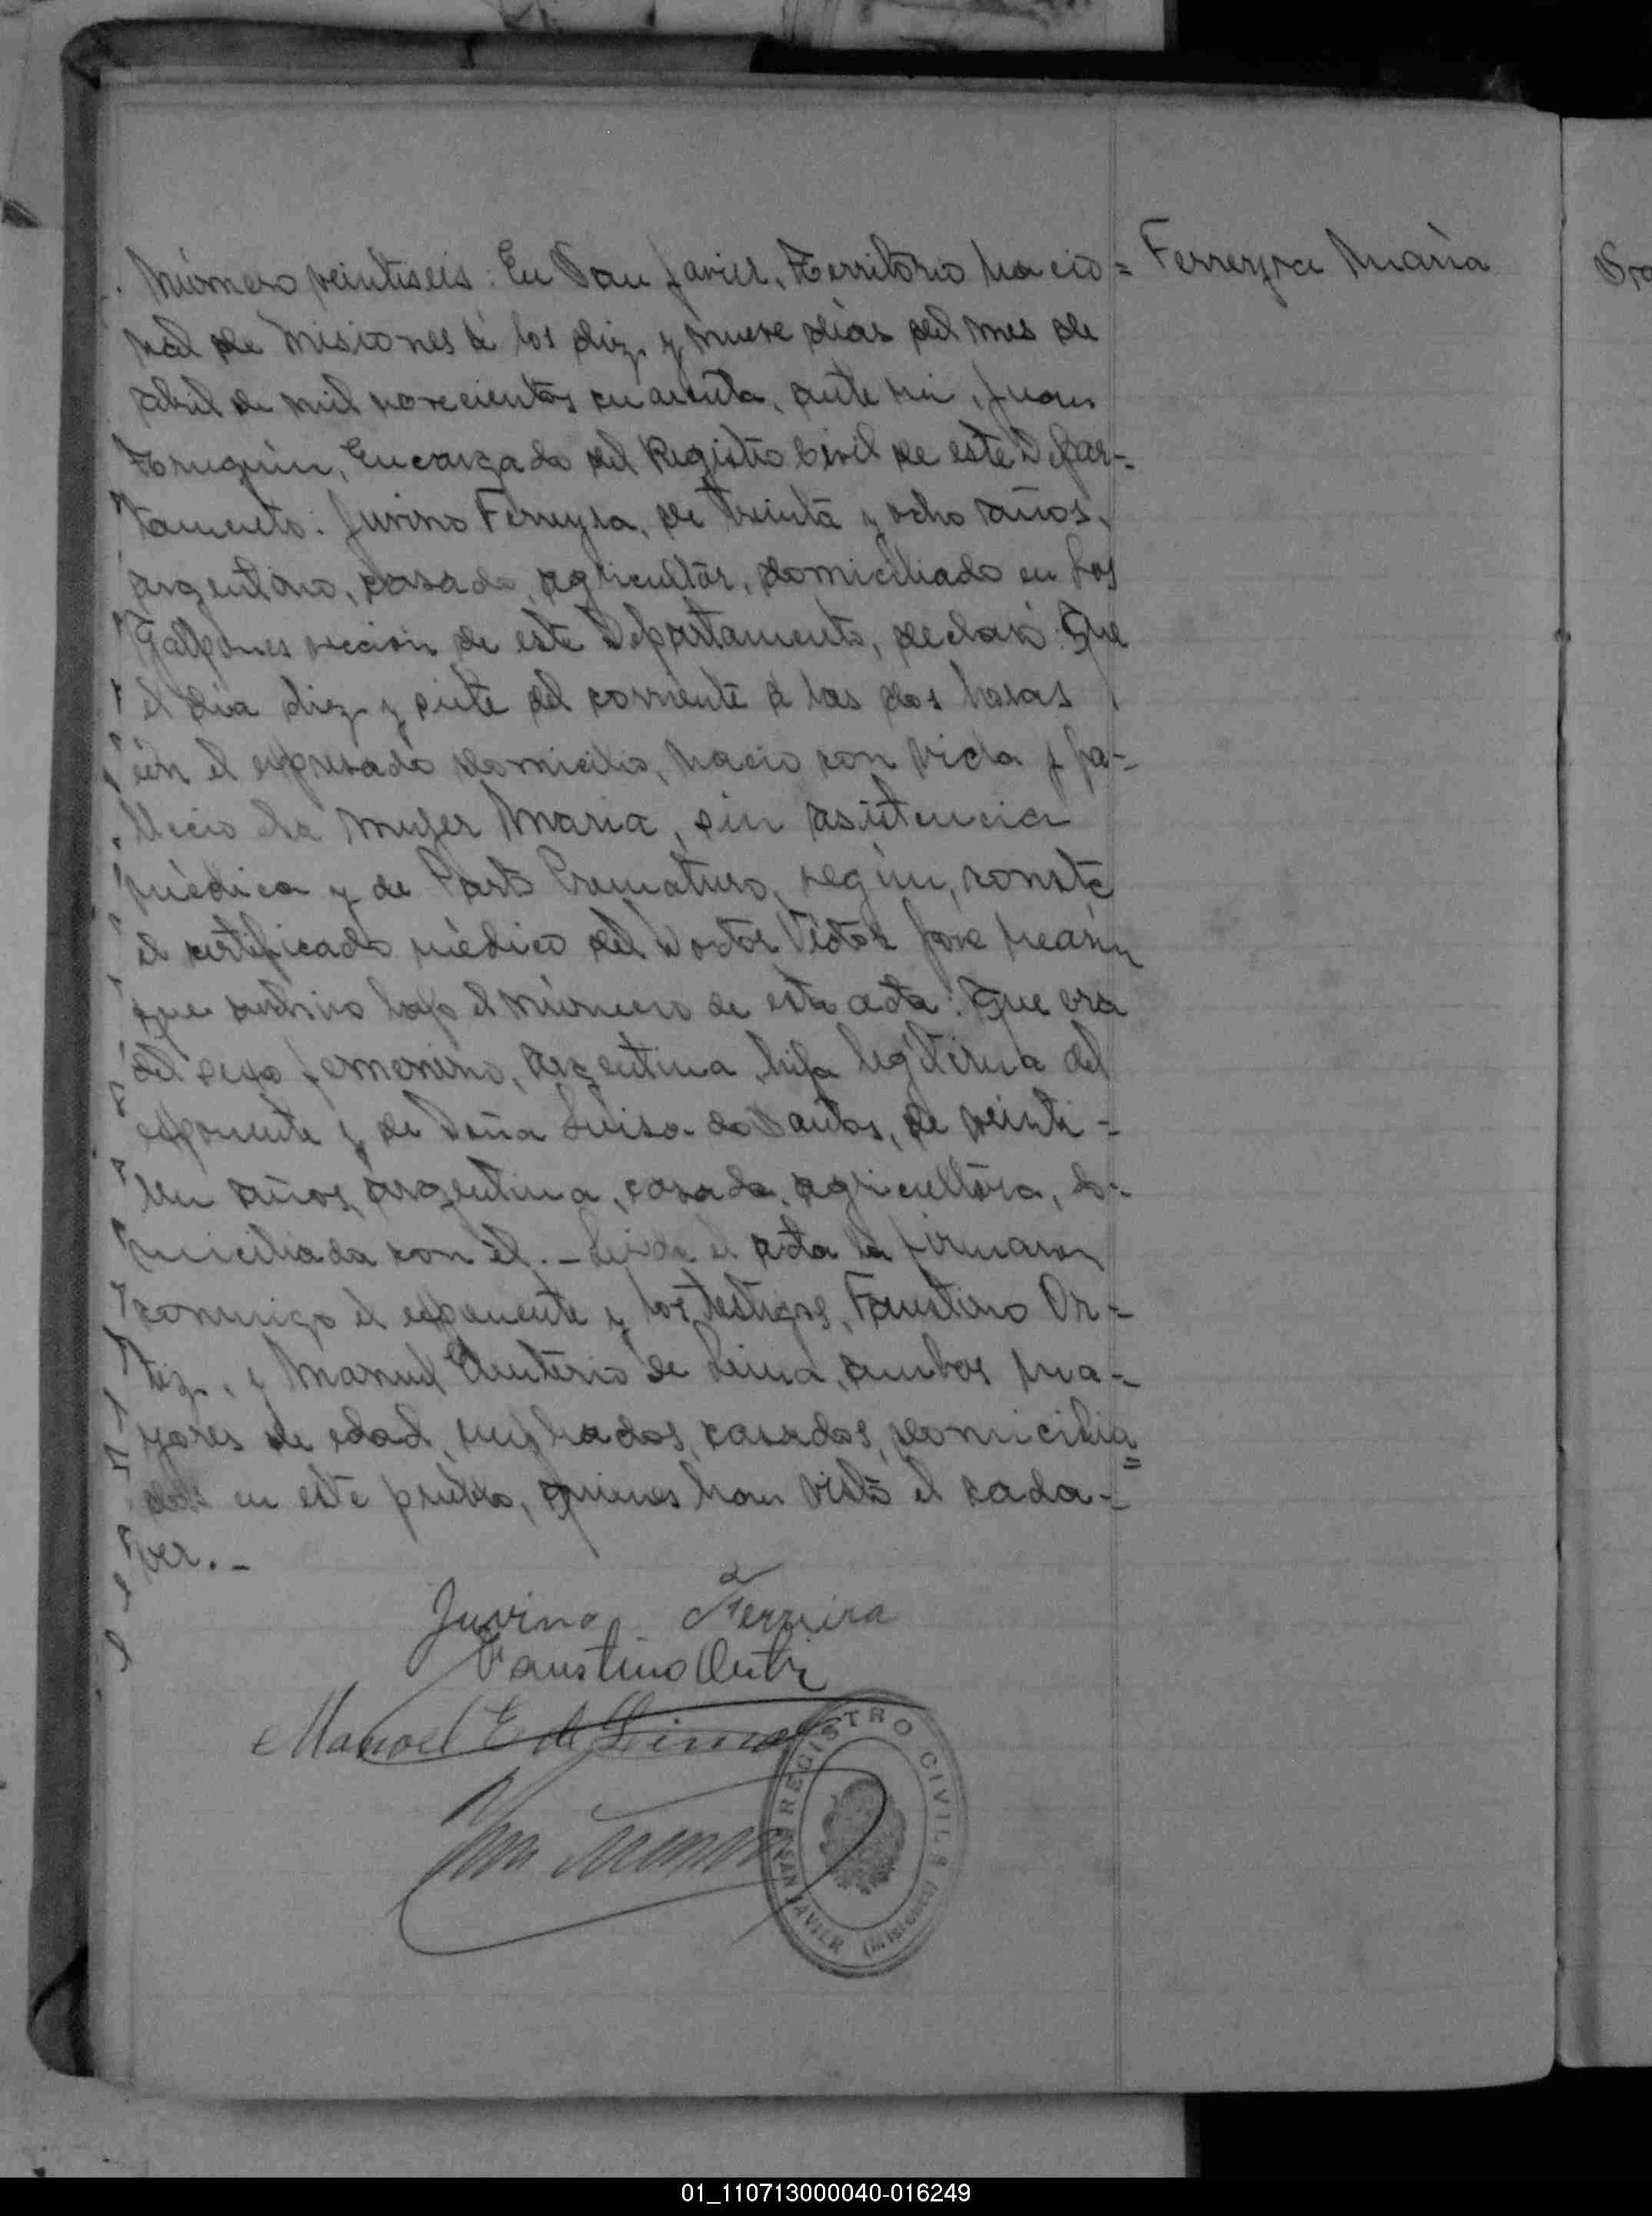 Número veintiseis: En San Javier, Territorio Nacio=
Ferreyra Maria
nal de Misiones á los diez y nueve dias del mes de
abril de mil novecientos cuarenta, ante mi, Juan
Encargado del Registro Civil de este Depar-
tamento: Juvino Ferreyra, de treinta y ocho años,
argentino, casado, agricultor, domiciliado en Los
Galpones sección de este Departamento, declaró: Que
el dia diez y siete del corriente á las dos horas
en el expresado domicilio, nació con vida y fa-
lleció la mujer Maria, sin asistencia
médica y de Parto Prematuro, según, consta
el certificado médico del Doctor Victor José
que archivo bajo el número de esta acta: Que era
del sexo femenino, argentina, hija legitima del
exponente y de Doña Luisa do Santos, de veinti-
un años, argentina, casada, agricultora, do-
miciliada con él.- Leida el acta la firmaron
conmigo el exponente y los testigos, Faustino Or-
tiz, y Manuel Eleuterio de Lima, ambos ma-
yores de edad, casados, domicilia=
dos en este pueblo, quienes han visto el cada-
ver.-
Juvino Ferreira
Faustino Ortiz
Manoel E de Lima
REGISTRO CIVIL
SAN JAVIER (MISIONES)
01_110713000040-016249